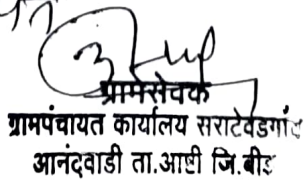 ग्रामसेवक
ग्रामपंचायत कार्यालय सराटेवडगाँव
आनंदवाडी ता.आष्टी जि.बीड